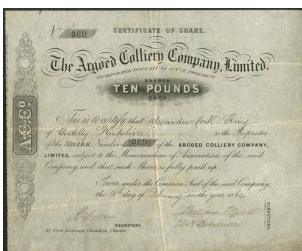 No 369 CERTIFICATE OF SHARE.
The Argoed Colliery Company, Limited.
INCORPORATED PURSUANT TO ACT OF PARLIAMENT
SHARES
TEN POUNDS
EACH
A.C.Co.
This is to certify that Alexander
of Buckley Flintshire is the Proprietor
of the SHARE, Number 369 of the ARGOED COLLIERY COMPANY,
LIMITED, subject to the Memorandum of Association of the said
Company and that such Share is fully paid up.
Given under the Common Seal of the said Company
the day of in the year
SECRETARY.
DIRECTORS.
Corn Exchange Chambers, Chester.